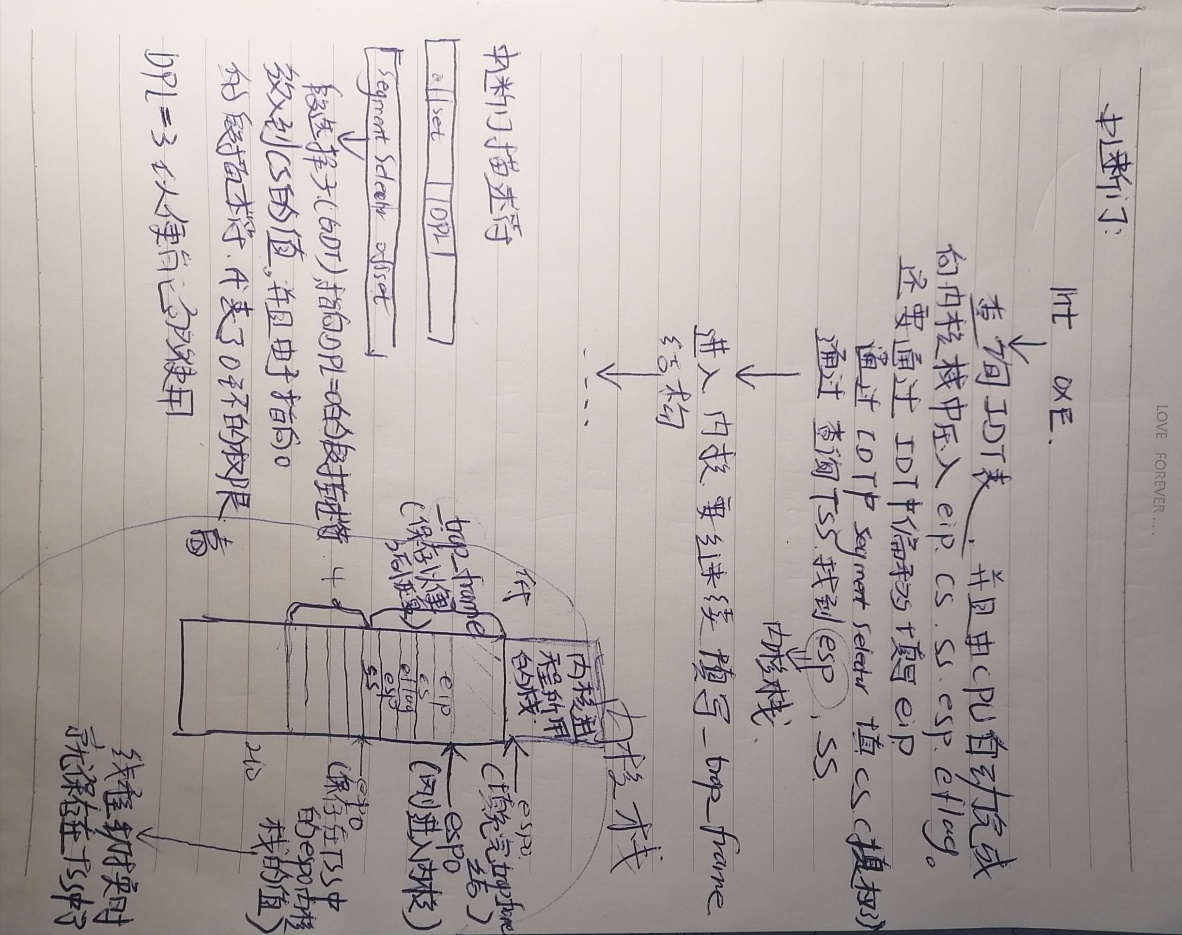 LOVE FOREVER...
中断门:
Int 0XE.
查询IDT表，并且由CPU自动完成
向内核栈中压入 eip. cs. ss. esp. eflag。
还要通过 IDT中偏移为填写 eip
通过 IDT中 segment selector 填 cs
通过 查询TSS.找到 esp , SS.
内核栈.
进入 内核 要继续填写 _trap_frame
结构
....
中断门描述符
offset DPL
Segment Selector offset
段选择子(GDT)指向DPL=0的段描述符
放入到CS的值,并且由于指向0
的段描述符.代表了0环的权限
DPL=3 以便自己可以使用
内核栈
内核线
程所用
的栈.
_trap_frame
(保存以便
eip
cs
eflag
esp
ss
高
esp0.
(填充完trapframe
结束)
esp0
(刚进入内核)
esp0
(保存在TSS中
的esp0内核
栈的值)
线程切换时
就保存在TSS中了